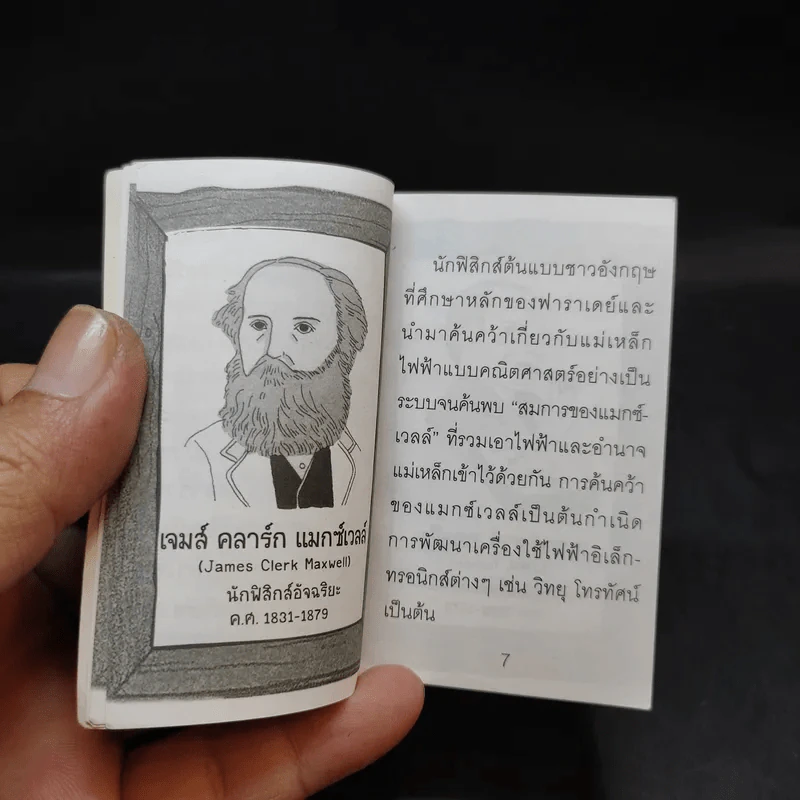 เจมส์ คลาร์ก แมกซ์เวลล์
(James Clerk Maxwell)
นักฟิสิกส์อัจฉริยะ
ค.ศ. 1831-1879
นักฟิสิกส์ต้นแบบชาวอังกฤษ
ที่ศึกษาหลักของฟาราเดย์และ
นำมาค้นคว้าเกี่ยวกับแม่เหล็ก
ไฟฟ้าแบบคณิตศาสตร์อย่างเป็น
ระบบจนค้นพบ “สมการของแมกซ์-
เวลล์” ที่รวมเอาไฟฟ้าและอำนาจ
แม่เหล็กเข้าไว้ด้วยกัน การค้นคว้า
ของแมกซ์เวลล์เป็นต้นกำเนิด
การพัฒนาเครื่องใช้ไฟฟ้าอิเล็ก-
ทรอนิกส์ต่างๆ เช่น วิทยุ โทรทัศน์
เป็นต้น
7